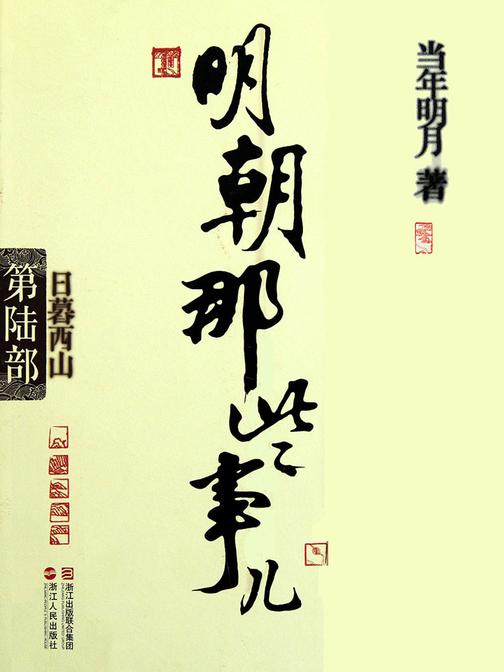 当年明月 著
明朝那些事儿
日暮西山
第陆部
浙江出版联合集团
浙江人民出版社